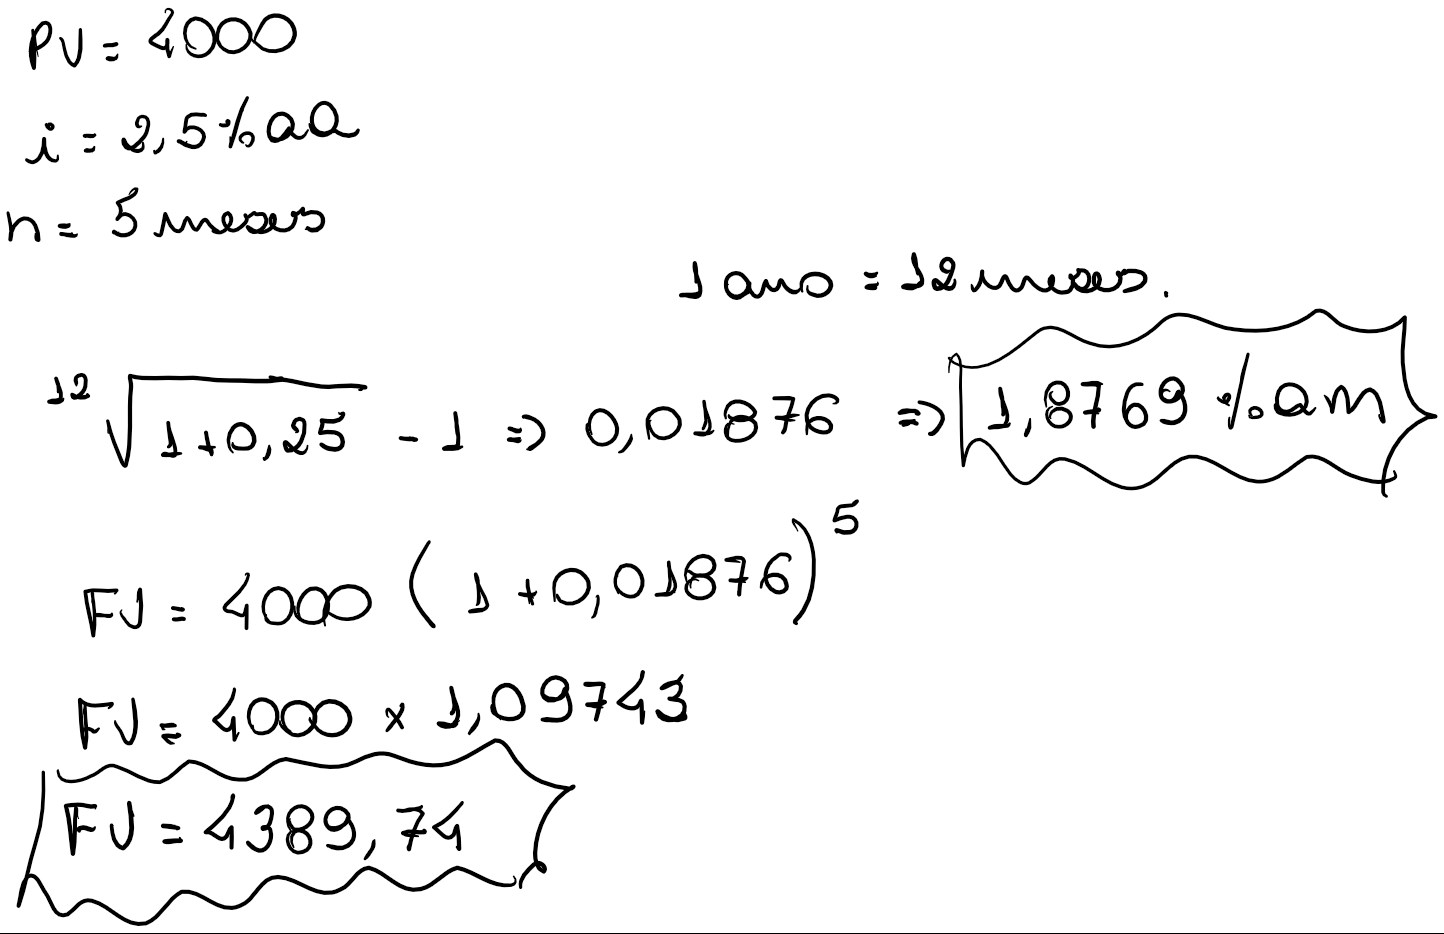 PV = 4000
i = 2,5 % aa
n = 5 meses
1 ano = 12 meses.
12√1+0,25 - 1 => 0,01876 => 1,8769 % am
FV = 4000 (1 + 0,01876)^5
FV = 4000 x 1,09743
FV = 4389,74